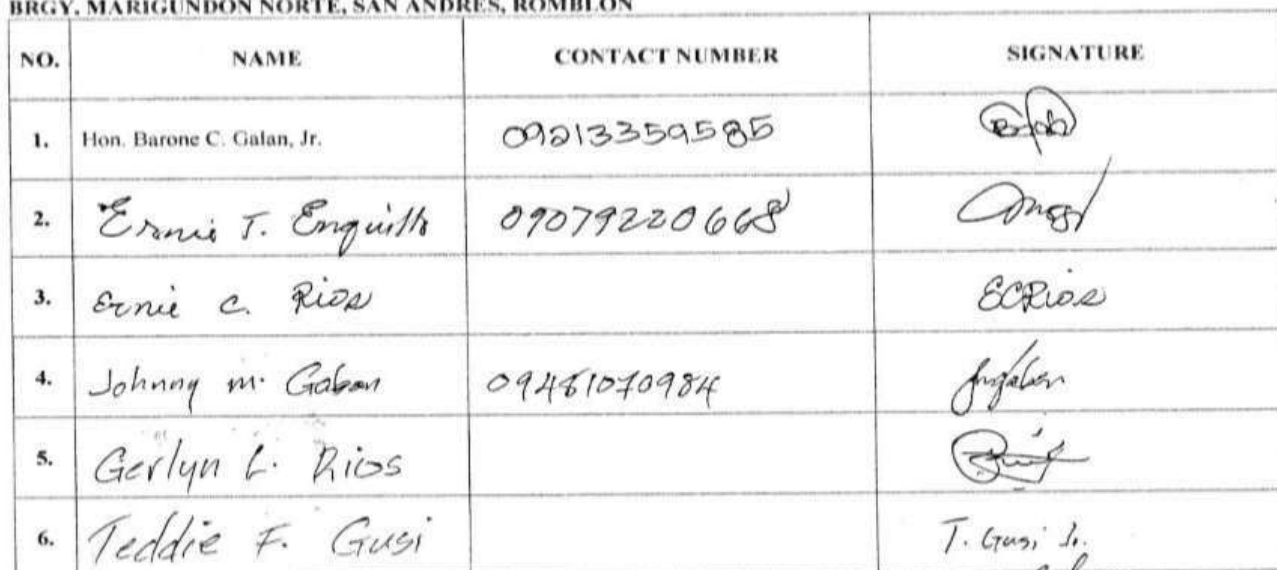 BRGY. MARIGUNDON NORTE, SAN ANDRES, ROMBLON
NO. NAME CONTACT NUMBER SIGNATURE
1. Hon. Barone C. Galan, Jr. 09213359585
2. Ernie T. Enquillo 09079220668
3. Ernie C. Rios ECRios
4. Johnny M. Gaban 09481070984
5. Gerlyn L. Rios
6. Teddie F. Gusi T. Gusi Jr.